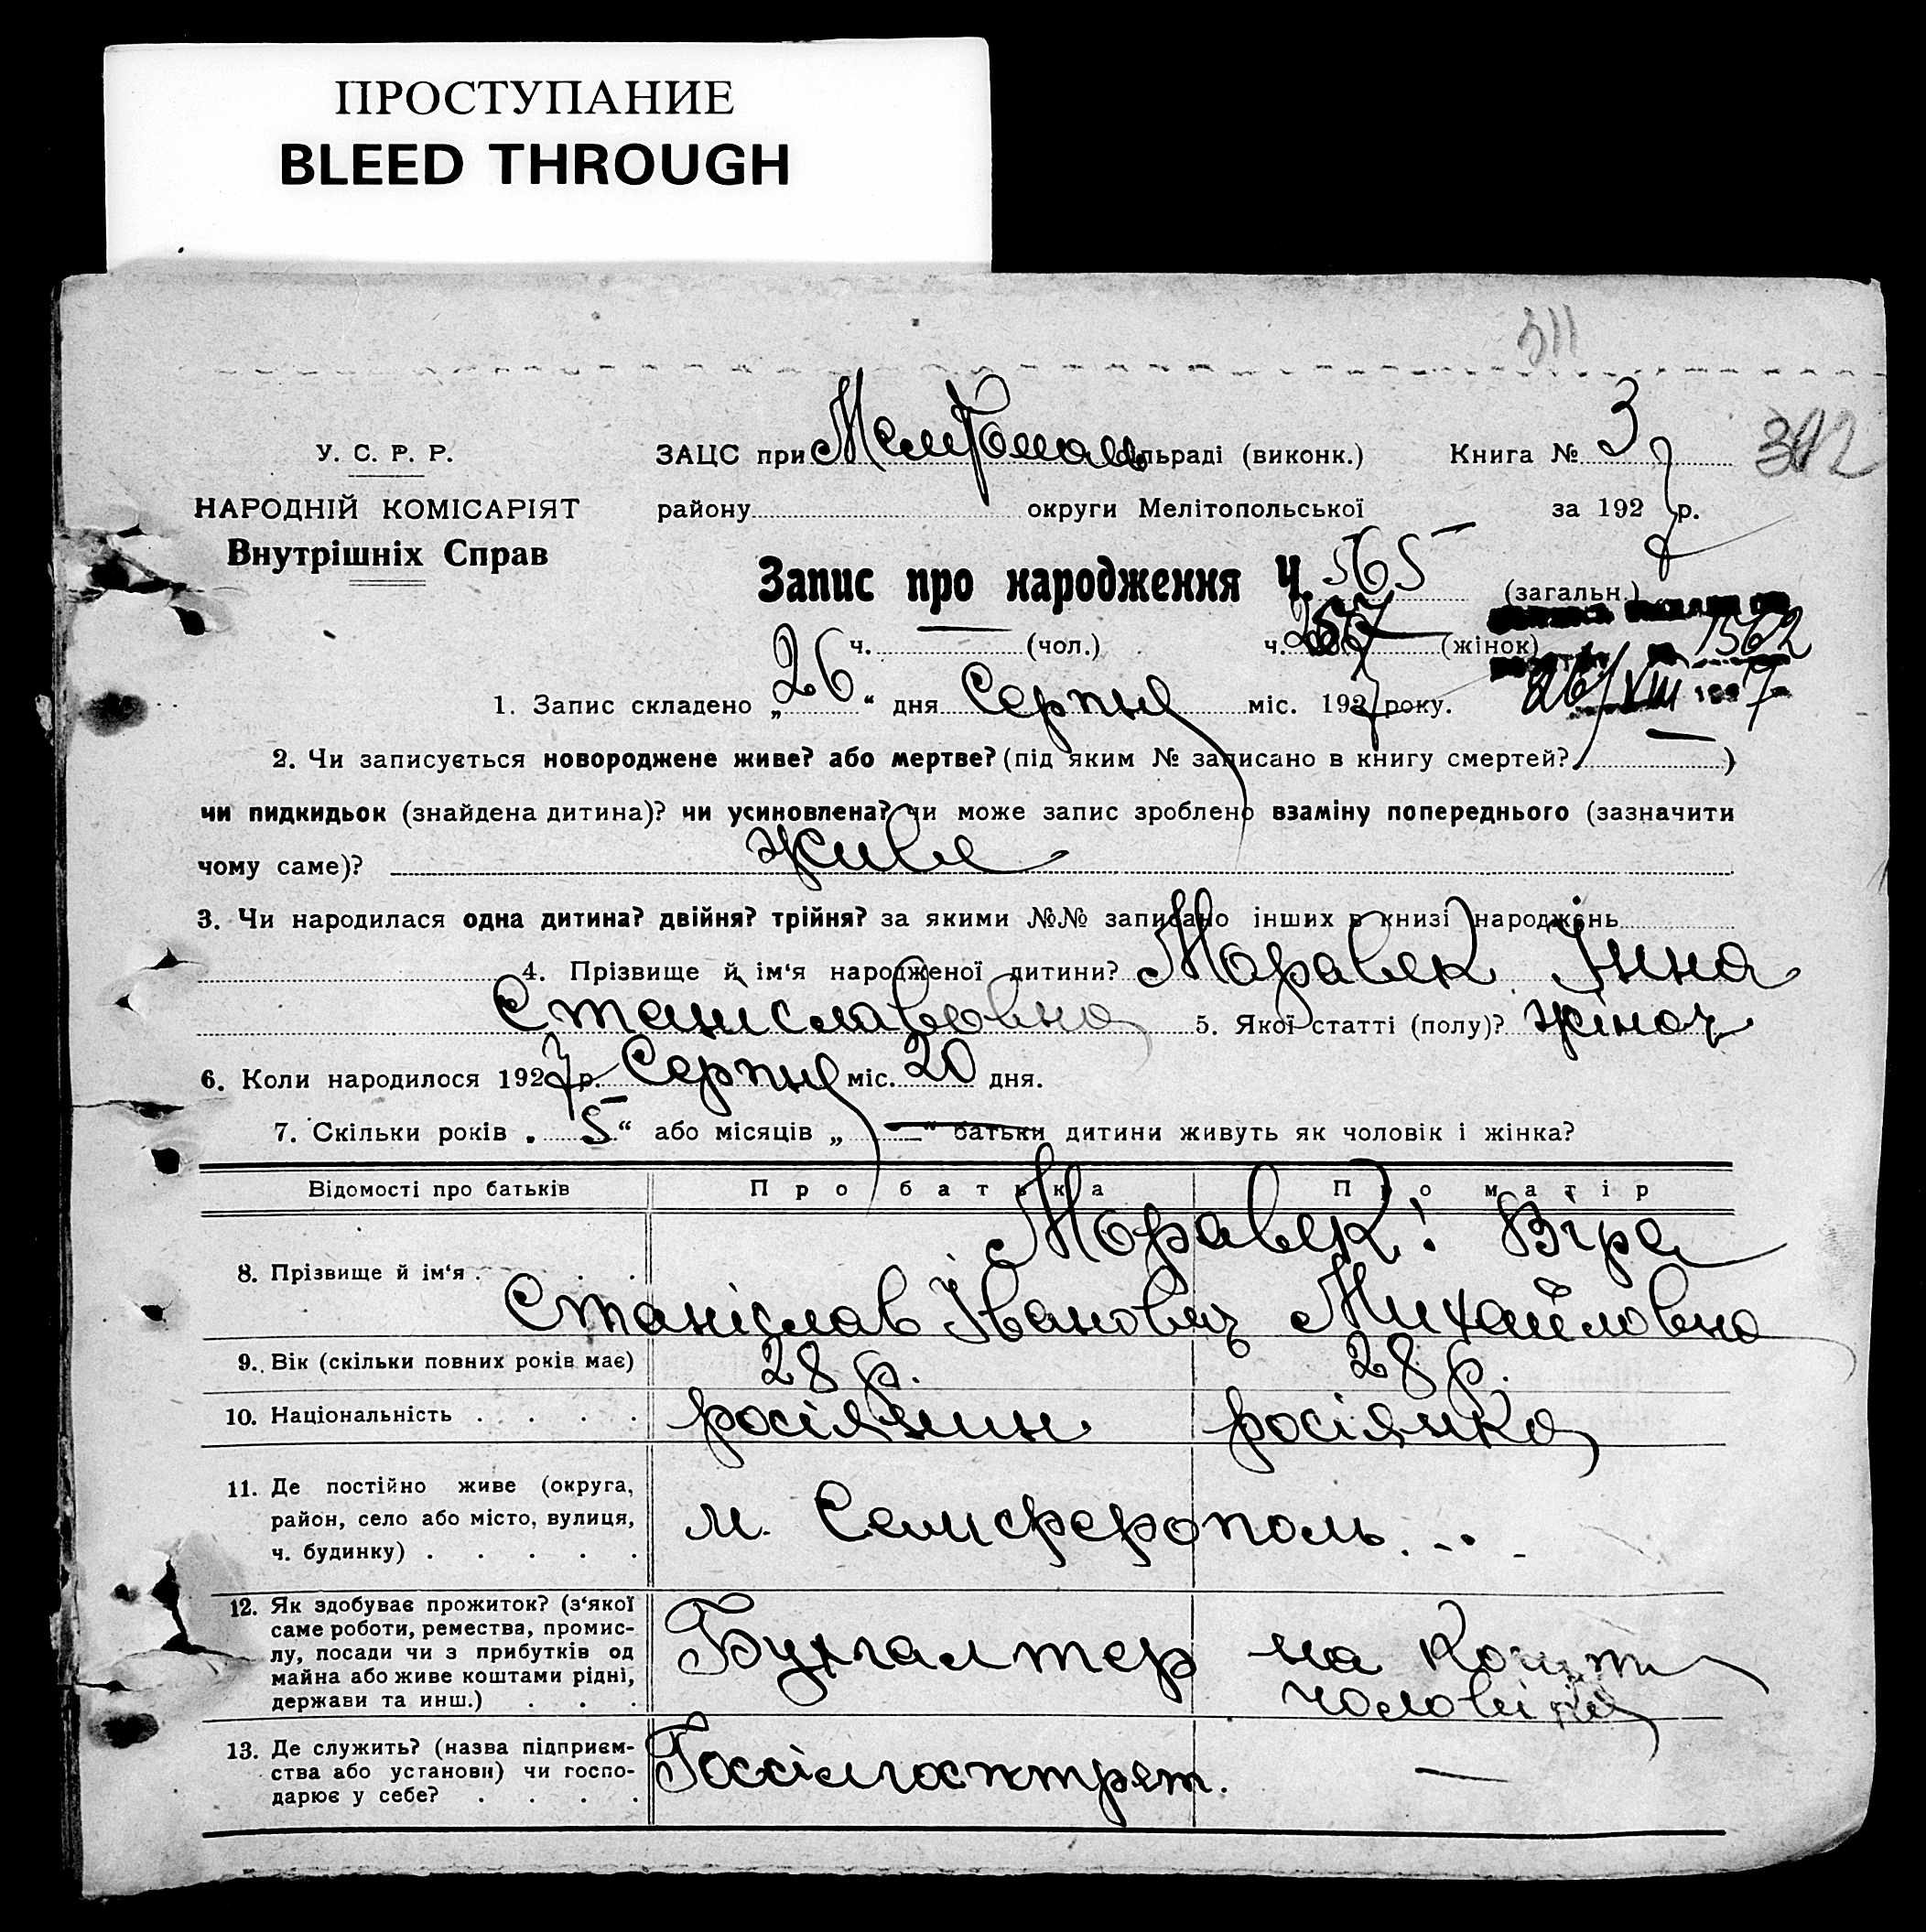 ПРОСТУПАНИЕ
BLEED THROUGH
311
У. С. Р. Р.
ЗАЦС при Мелітополь сільраді (виконк.) Книга № 3
312
НАРОДНІЙ КОМІСАРІЯТ
району округи Мелітопольської за 1927 р.
Внутрішніх Справ
Запис про народження Ч. 565 (загальн.)
ч. — (чол.) ч. 257 (жінок)
1562
26/VIII 1927
1. Запис складено „26“ дня Серпня міс. 1927 року.
2. Чи записується новороджене живе? або мертве? (під яким № записано в книгу смертей? — )
чи пидкидьок (знайдена дитина)? чи усиновлена? чи може запис зроблено взаміну попереднього (зазначити
чому саме)? живе
3. Чи народилася одна дитина? двійня? трійня? за якими №№ записано інших в книзі народжень
4. Прізвище й ім‘я народженої дитини? Моравек Інна
Станіславовна 5. Якої статті (полу)? жіноч
6. Коли народилося 1927 р. Серпня міс. 20 дня.
7. Скільки років „5“ або місяців „—“ батьки дитини живуть як чоловік і жінка?
Відомості про батьків Про батька Про матір
Моравек: Віра
8. Прізвище й ім‘я . . .
Станіслав Іванович Михайловна
9. Вік (скільки повних років має) 28 р. 28 р.
10. Національність . . . . росіянин росіянка
11. Де постійно живе (округа,
район, село або місто, вулиця,
м. Семферополь
ч. будинку) . . . . .
12. Як здобуває прожиток? (з‘якої
саме роботи, ремества, промис-
лу, посади чи з прибутків од
Бухгалтер на кошти
майна або живе коштами рідні,
держави та инш.) . . .
чоловіка
13. Де служить? (назва підприєм-
ства або установи) чи госпо-
Госсілгосптрест. —
дарює у себе? . . . .